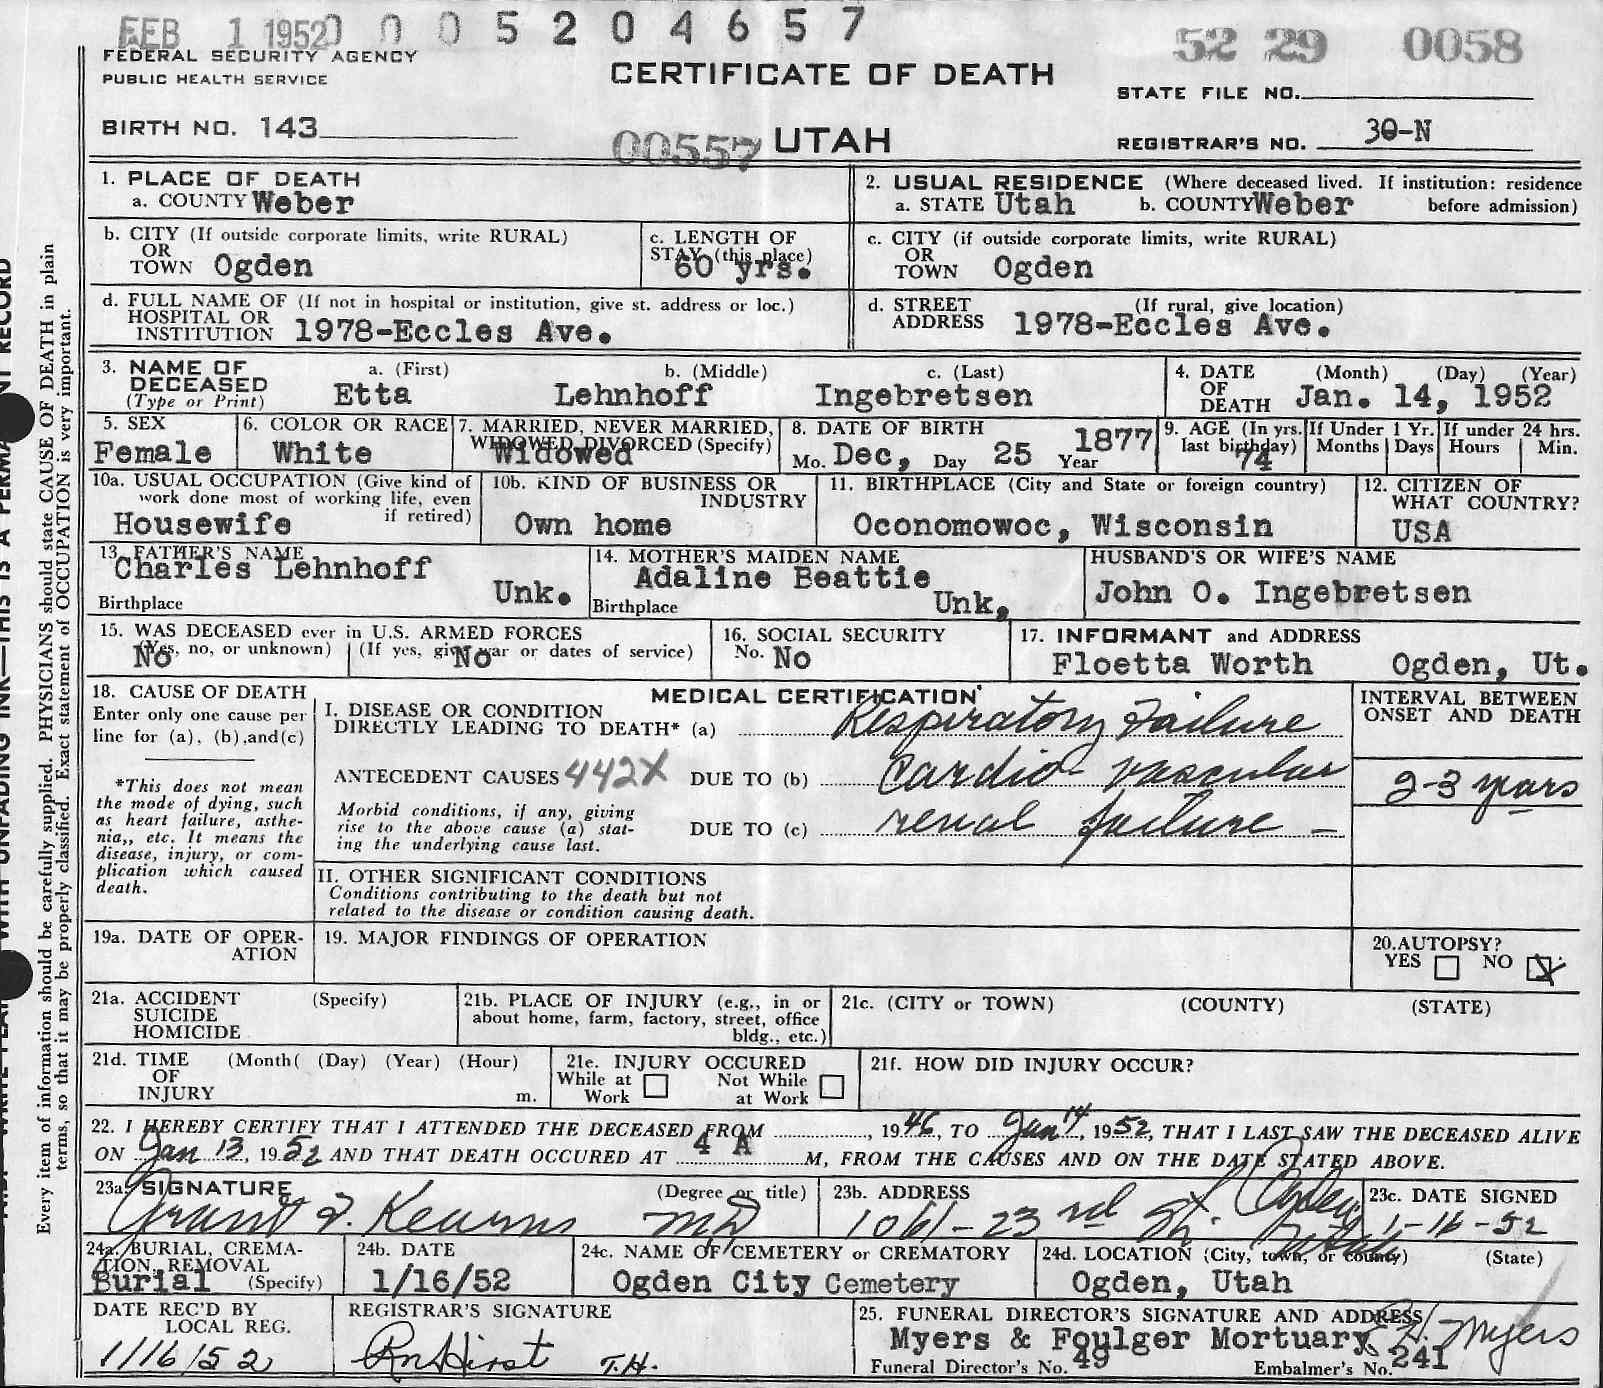 FEB 1 1952 0 0 0 5 2 0 4 6 5 7
52 29 0058
FEDERAL SECURITY AGENCY
PUBLIC HEALTH SERVICE
CERTIFICATE OF DEATH
STATE FILE NO.
BIRTH NO. 143
00557 UTAH
REGISTRAR'S NO. 30-N
1. PLACE OF DEATH
a. COUNTY Weber
2. USUAL RESIDENCE (Where deceased lived. If institution: residence
a. STATE Utah b. COUNTY Weber before admission)
b. CITY (If outside corporate limits, write RURAL)
OR
TOWN Ogden
c. LENGTH OF
STAY (this place)
60 yrs.
c. CITY (if outside corporate limits, write RURAL)
OR
TOWN Ogden
d. FULL NAME OF (If not in hospital or institution, give st. address or loc.)
HOSPITAL OR
INSTITUTION 1978-Eccles Ave.
d. STREET (If rural, give location)
ADDRESS 1978-Eccles Ave.
3. NAME OF a. (First) b. (Middle) c. (Last)
DECEASED
(Type or Print) Etta Lehnhoff Ingebretsen
4. DATE (Month) (Day) (Year)
OF
DEATH Jan. 14, 1952
5. SEX
Female
6. COLOR OR RACE
White
7. MARRIED, NEVER MARRIED,
WIDOWED, DIVORCED (Specify)
Widowed
8. DATE OF BIRTH
Mo. Dec, Day 25 Year 1877
9. AGE (In yrs.
last birthday)
74
If Under 1 Yr.
Months Days
If under 24 hrs.
Hours Min.
10a. USUAL OCCUPATION (Give kind of
work done most of working life, even
if retired)
Housewife
10b. KIND OF BUSINESS OR
INDUSTRY
Own home
11. BIRTHPLACE (City and State or foreign country)
Oconomowoc, Wisconsin
12. CITIZEN OF
WHAT COUNTRY?
USA
13. FATHER'S NAME
Charles Lehnhoff
Birthplace Unk.
14. MOTHER'S MAIDEN NAME
Adaline Beattie
Birthplace Unk,
HUSBAND'S OR WIFE'S NAME
John O. Ingebretsen
15. WAS DECEASED ever in U.S. ARMED FORCES
(Yes, no, or unknown) (If yes, give war or dates of service)
No No
16. SOCIAL SECURITY
No. No
17. INFORMANT and ADDRESS
Floetta Worth Ogden, Ut.
18. CAUSE OF DEATH
Enter only one cause per
line for (a), (b),and(c)
*This does not mean
the mode of dying, such
as heart failure, asthe-
nia,, etc. It means the
disease, injury, or com-
plication which caused
death.
MEDICAL CERTIFICATION
I. DISEASE OR CONDITION
DIRECTLY LEADING TO DEATH* (a) Respiratory Failure
ANTECEDENT CAUSES 442X DUE TO (b) Cardio- vascular
Morbid conditions, if any, giving
rise to the above cause (a) stat-
ing the underlying cause last.
DUE TO (c) renal failure -
INTERVAL BETWEEN
ONSET AND DEATH
2-3 years
II. OTHER SIGNIFICANT CONDITIONS
Conditions contributing to the death but not
related to the disease or condition causing death.
19a. DATE OF OPER-
ATION
19. MAJOR FINDINGS OF OPERATION
20.AUTOPSY?
YES NO
21a. ACCIDENT (Specify)
SUICIDE
HOMICIDE
21b. PLACE OF INJURY (e.g., in or
about home, farm, factory, street, office
bldg., etc.)
21c. (CITY or TOWN) (COUNTY) (STATE)
21d. TIME (Month( (Day) (Year) (Hour)
OF
INJURY m.
21e. INJURY OCCURED
While at Not While
Work at Work
21f. HOW DID INJURY OCCUR?
22. I HEREBY CERTIFY THAT I ATTENDED THE DECEASED FROM , 1946, TO Jan 14, 1952, THAT I LAST SAW THE DECEASED ALIVE
ON Jan 13, 1952 AND THAT DEATH OCCURED AT 4 A M, FROM THE CAUSES AND ON THE DATE STATED ABOVE.
23a. SIGNATURE (Degree or title)
Grant F. Kearns MD
23b. ADDRESS
1061-23rd St. Ogden, Utah
23c. DATE SIGNED
1-16-52
24a. BURIAL, CREMA-
TION, REMOVAL
Burial (Specify)
24b. DATE
1/16/52
24c. NAME OF CEMETERY or CREMATORY
Ogden City Cemetery
24d. LOCATION (City, town, or county) (State)
Ogden, Utah
DATE REC'D BY
LOCAL REG.
1/16/52
REGISTRAR'S SIGNATURE
T.H.
25. FUNERAL DIRECTOR'S SIGNATURE AND ADDRESS
Myers & Foulger Mortuary Myers
Funeral Director's No. 49 Embalmer's No. 241
Every item of information should be carefully supplied. PHYSICIANS should state CAUSE OF DEATH in plain
terms, so that it may be properly classified. Exact statement of OCCUPATION is very important.